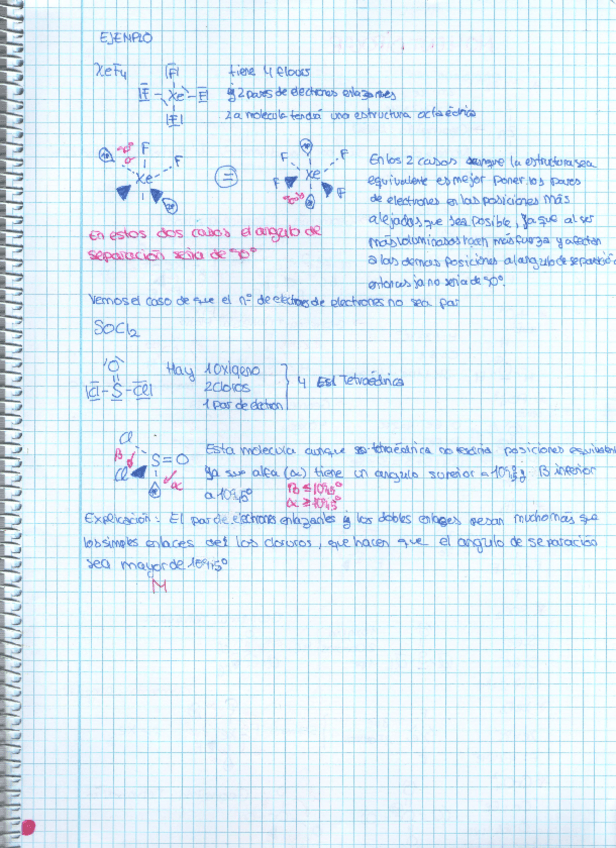 EJEMPLO
XeF4
|F|
|F - Xe - F|
|F|
tiene 4 fluors
y 2 pares de electrones enlazantes
La molecula tendrá una estructura octaédrica
F
F
Xe
90º
α
=
F
F
Xe
F
F
90º
En estos dos casos el angulo de
separación seria de 90º
En los 2 casos aunque la estructura sea
equivalente es mejor poner los pares
de electrones en las posiciones más
alejadas que sea posible, ya que al ser
más voluminosos hacen más fuerza y afectan
a las demas posiciones al angulo de separación
entonces ya no seria de 90º.
Vemos el caso de que el nº de electrones no sea par
SOCl2
O
|Cl - S - Cl|
Hay 1 Oxígeno
2 Cloros
1 par de electrón
4 Est Tetraédrica
Cl
β
S = O
Cl
α
Esta molecula aunque tetraédrica no posiciones equivalentes
ya que alfa (α) tiene un angulo superior a 109,5 y β inferior
a 109,5º
β ≤ 109,5º
α ≥ 109,5º
Explicación: El par de electrones enlazantes y los dobles enlaces pesan mucho más que
los simples enlaces de los cloruros, que hacen que el angulo de separación
sea mayor de 109,5º
M